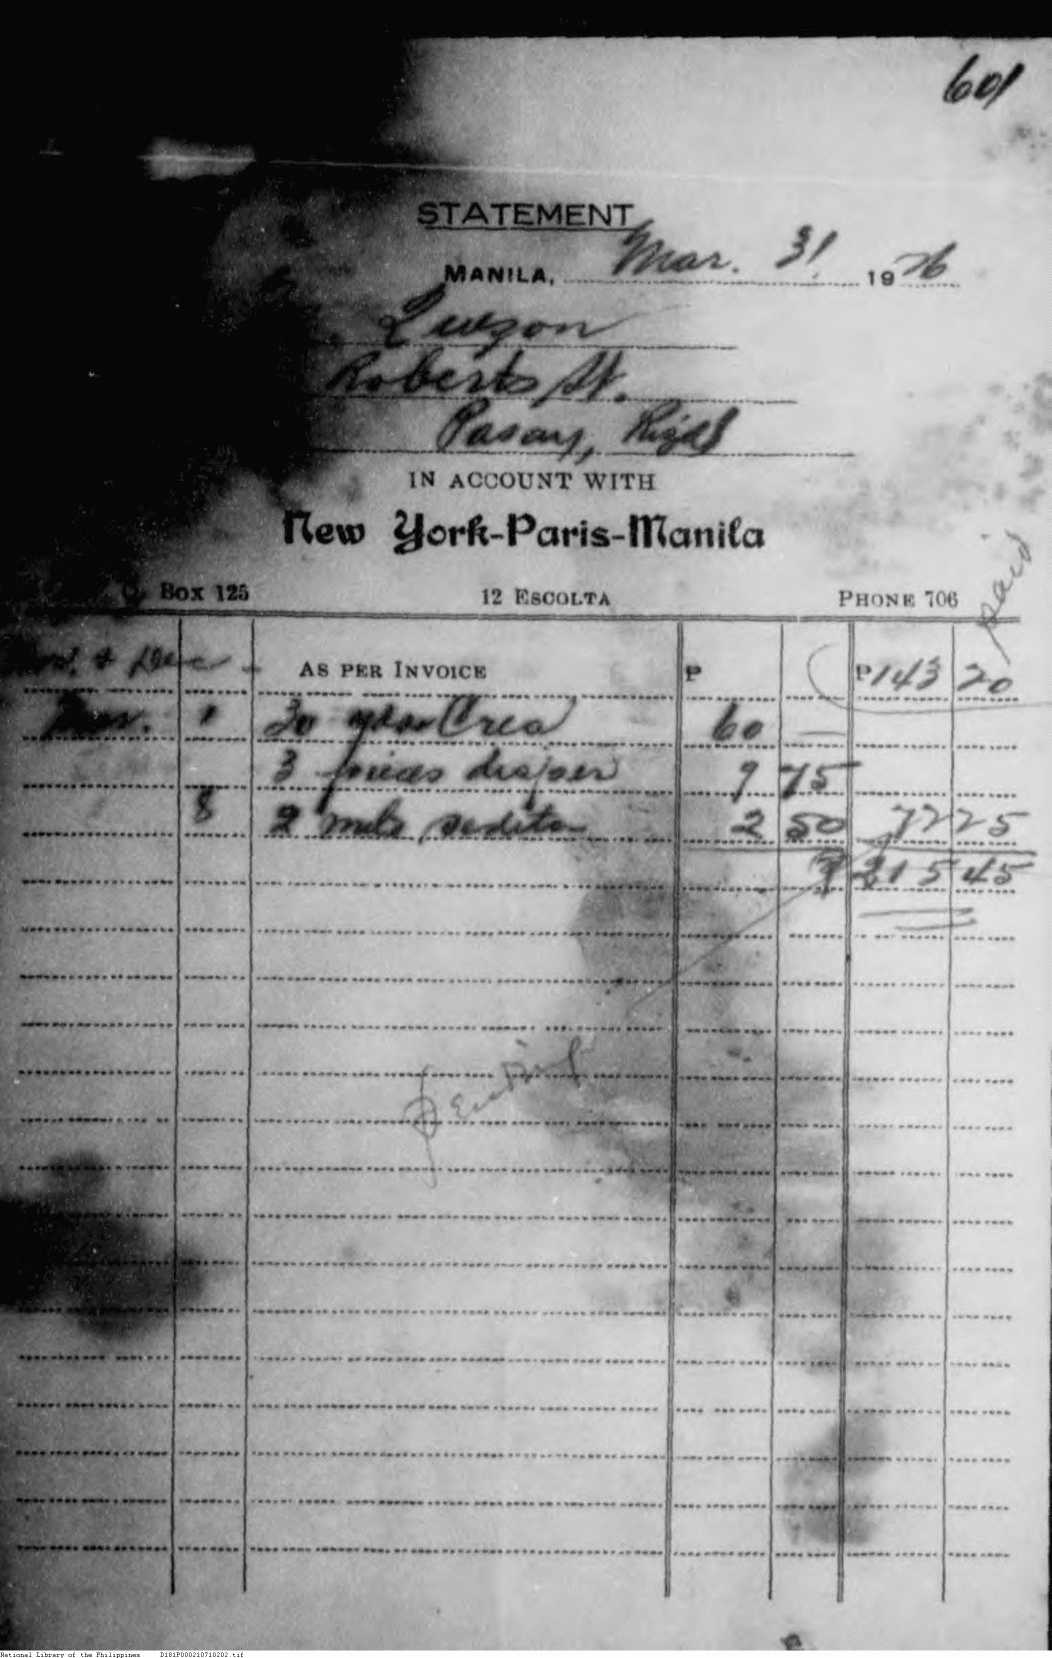 601
STATEMENT
MANILA, Mar. 31 1926
Luzon
Roberts St.
Pasay, Rizal
IN ACCOUNT WITH
New York-Paris-Manila
Box 125 12 ESCOLTA PHONE 706
paid
& Dec AS PER INVOICE ₱ ₱143 20
1 30 yds Crea 60 —
3 pieces diaper 9 75
8 2 50 72 25
₱ 215 45
National Library of the Philippines D181P000210710202.tif